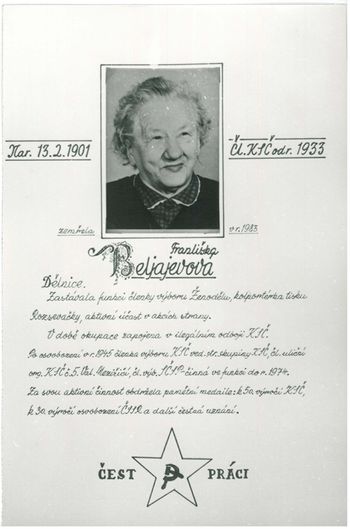 Nar. 13.2.1901
Čl. KSČ od r. 1933
zemřela v r. 1983
Františka
Beljajevova
Dělnice.
Zastávala funkci členky výboru Ženodělu, kolportérka tisku
Rozsevačky, aktivní účast v akcích strany.
V době okupace zapojena v ilegálním odboji KSČ.
Po osvobození v r. 1945 členka výboru KSČ ved. str. skupiny KSČ, čl. uliční
org. KSČ č. 5. Val. Meziříčí, čl. výb. činná ve funkci do r. 1974.
Za svou aktivní činnost obdržela pamětní medaile: k 50. výročí KSČ,
k 30. výročí osvobození ČSSR a další čestná uznání.
ČEST PRÁCI